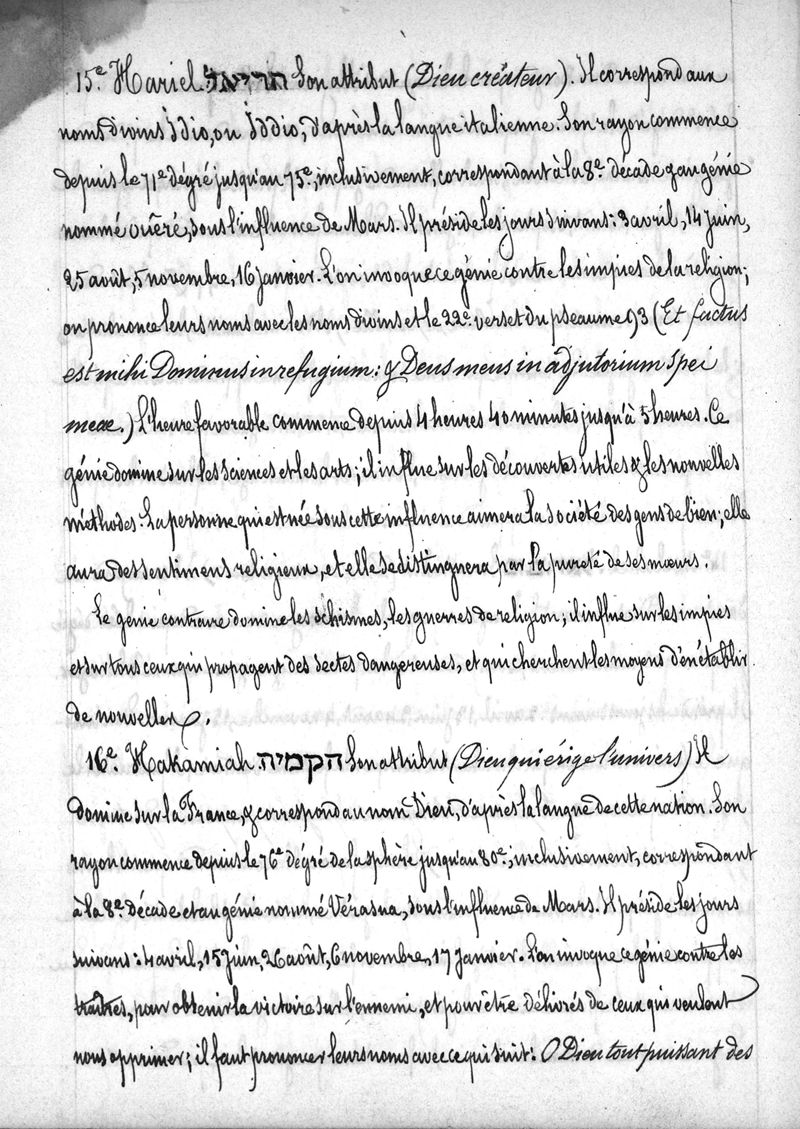 15.e Hariel הריאל. Son attribut (Dieu créateur). Il correspond aux
noms divins Idio, ou Iddio, d'après la langue italienne. Son rayon commence
depuis le 71e dégré jusqu'au 75e, inclusivement, correspondant à la 8e. décade & au génie
nommé ouêré, sous l'influence de Mars. Il préside les jours suivans: 3 avril, 14 Juin,
25 août, 5 novembre, 16 Janvier. L'on invoque ce génie contre les impies de la religion;
on prononce leurs noms avec les noms divins et le 22e. verset du pseaume 93 (Et factus
est mihi Dominus in refugium: & Deus meus in adjutorium spei
meae.) L'heure favorable commence depuis 4 heures 40 minutes jusqu'à 5 heures. Ce
génie domine sur les sciences et les arts; il influe sur les découvertes utiles & les nouvelles
méthodes. La personne qui est née sous cette influence aimera la société des gens de bien; elle
aura des sentimens religieux, et elle se distinguera par la pureté de ses mœurs.
Le génie contraire domine les schismes, les guerres de religion; il influe sur les impies
et sur tous ceux qui propagent des sectes dangereuses, et qui cherchent les moyens d'en établir
de nouvelles.
16e. Hakamiah הקמיה. Son attribut (Dieu qui érige l'univers) Il
domine sur la France, & correspond au nom Dieu, d'après la langue de cette nation. Son
rayon commence depuis le 76e dégré de la sphère jusqu'au 80e; inclusivement, correspondant
à la 8e. décade et au génie nommé Vérasua, sous l'influence de Mars. Il préside les jours
suivans: 4 avril, 15 Juin, 26 août, 6 novembre, 17 Janvier. L'on invoque ce génie contre les
traîtres, pour obtenir la victoire sur l'ennemi, et pour être délivrés de ceux qui veulent
nous opprimer; il faut prononcer leurs noms avec ce qui suit: O Dieu tout puissant des